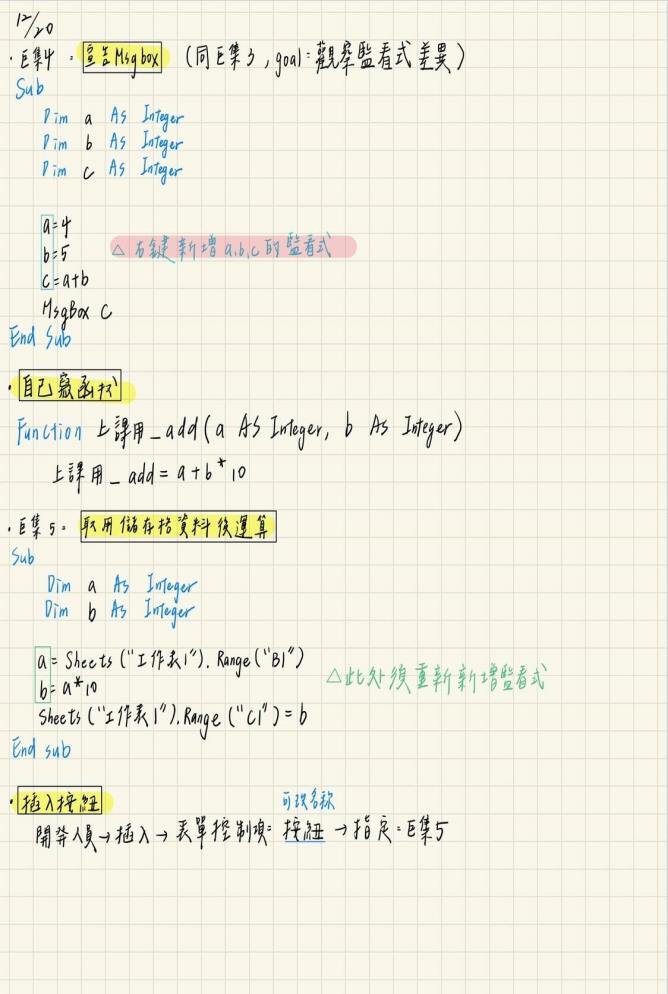 12/20
·巨集4：宣告Msgbox （同巨集3，goal：觀察監看式差異）
Sub
Dim a As Integer
Dim b As Integer
Dim c As Integer
a=4
b=5 △右鍵新增a,b,c的監看式
c=a+b
MsgBox c
End Sub
·自己寫函式
Function 上課用_add(a As Integer, b As Integer)
上課用_add = a+b*10
·巨集5：取用儲存格資料後運算
Sub
Dim a As Integer
Dim b As Integer
a= Sheets ("工作表1").Range("B1")
b= a*10 △此外須重新新增監看式
Sheets ("工作表1").Range ("C1") = b
End sub
·插入按鈕
可改名稱
開發人員→插入→表單控制項：按鈕→指定：巨集5